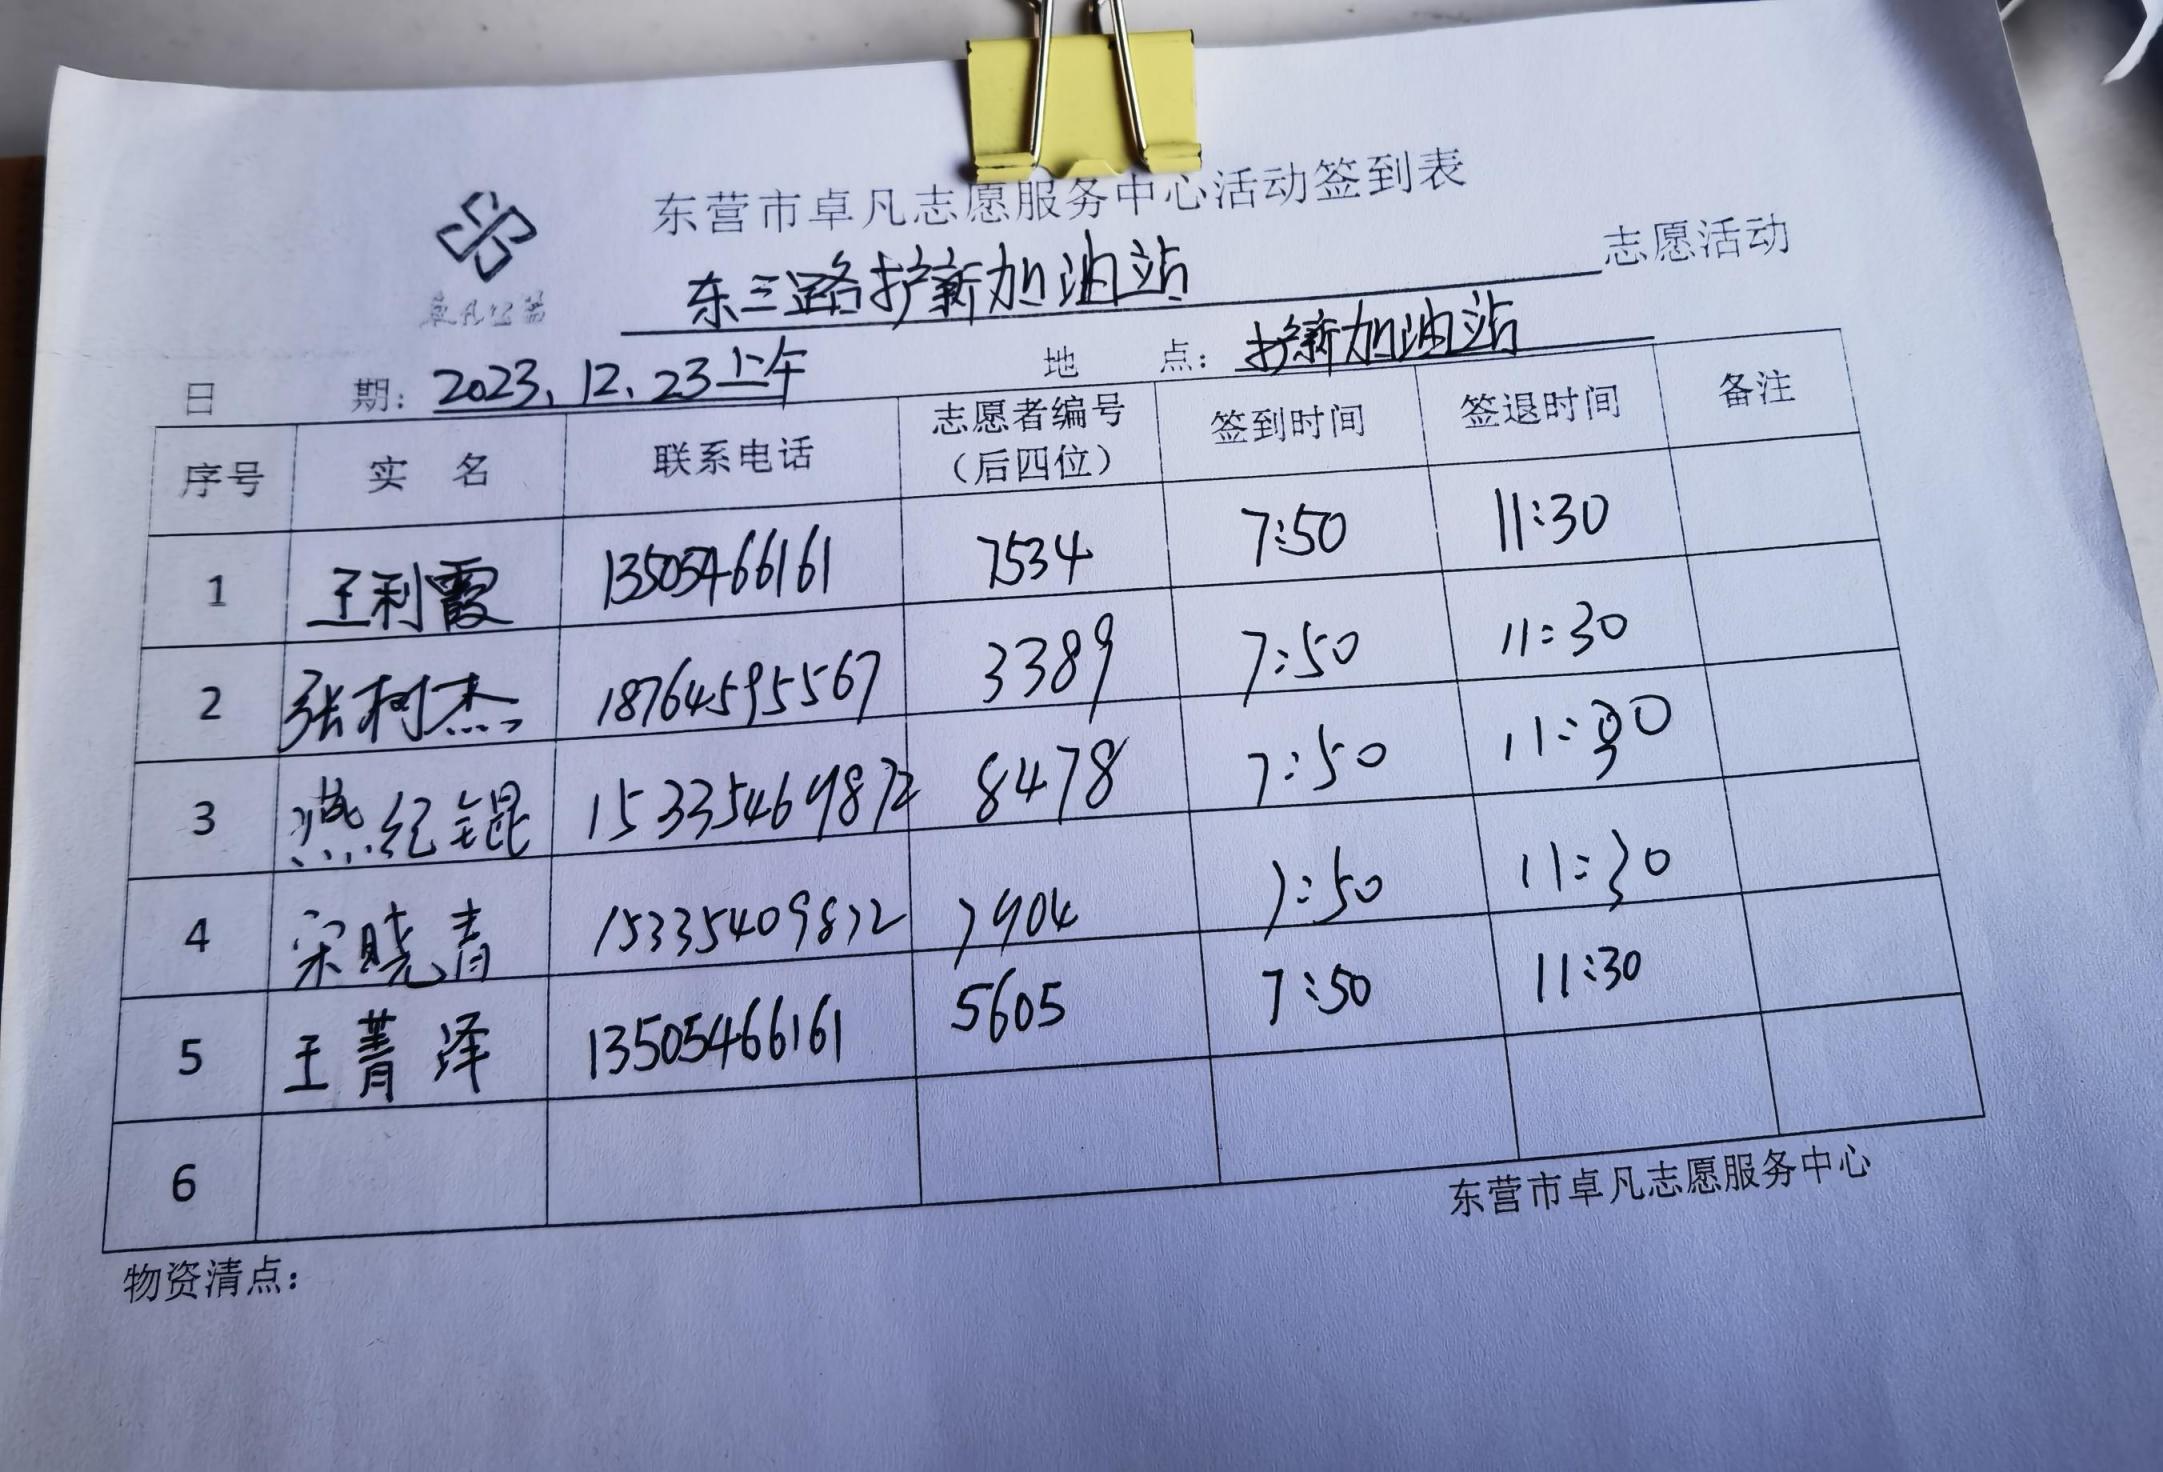 东营市卓凡志愿服务中心活动签到表
卓凡公益
东三路护薪加油站 志愿活动
日 期：2023.12.23上午 地 点：护薪加油站
序号 实 名 联系电话 志愿者编号（后四位） 签到时间 签退时间 备注
1 王利霞 13505466161 7534 7:50 11:30
2 张柯杰 18764595567 3389 7:50 11:30
3 燕纪锟 15335469872 8478 7:50 11:30
4 宋晓青 15335409872 7904 7:50 11:30
5 王菁泽 13505466161 5605 7:50 11:30
6
东营市卓凡志愿服务中心
物资清点：